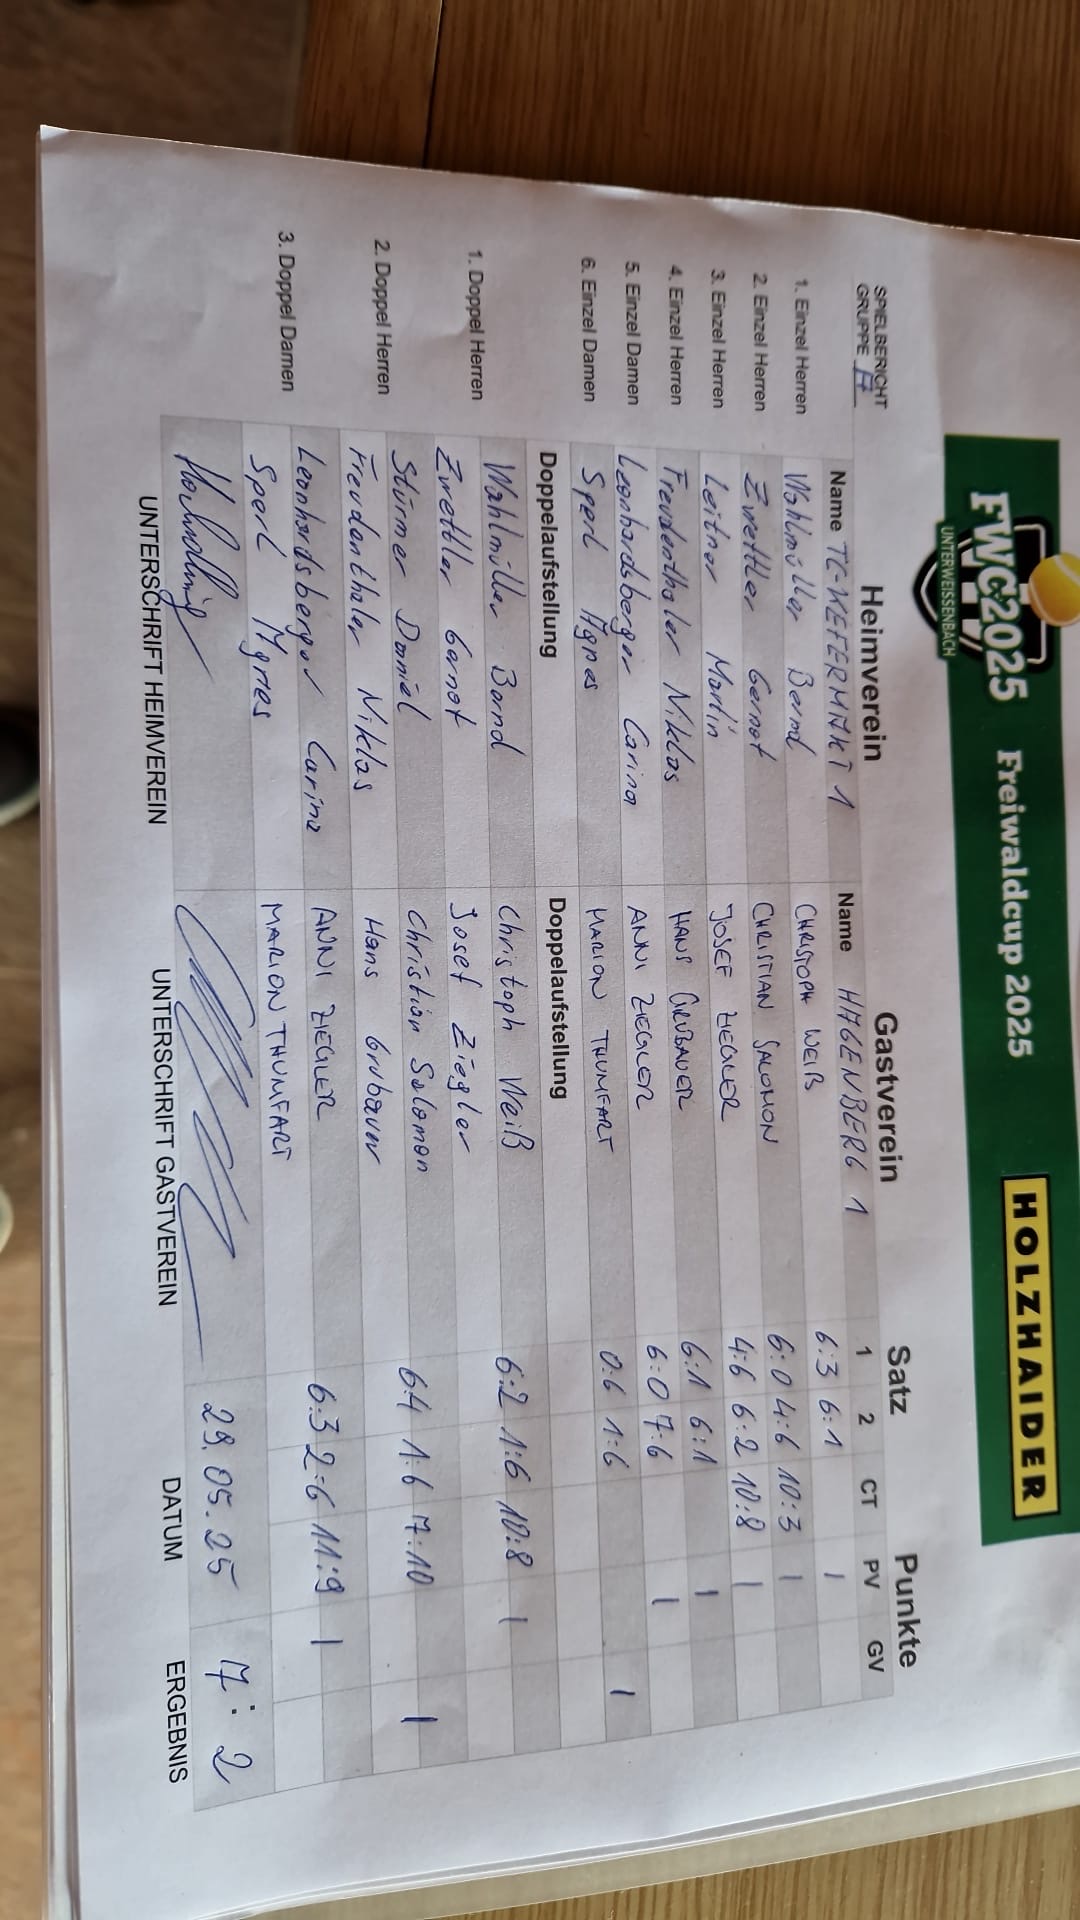 FWC2025
UNTERWEISSENBACH
Freiwaldcup 2025
HOLZHAIDER
SPIELBERICHT
GRUPPE A
Heimverein Gastverein Satz Punkte
Name TC-KEFERMAKT 1 Name HAGENBERG 1 1 2 CT PV GV
1. Einzel Herren Wahlmüller Bernd CHRISTOPH WEIß 6:3 6:1 1
2. Einzel Herren Zwettler Gernot CHRISTIAN SALOMON 6:0 4:6 10:3 1
3. Einzel Herren Leitner Martin JOSEF ZIEGLER 4:6 6:2 10:8 1
4. Einzel Herren Freudenthaler Niklas HANS GRUBAUER 6:1 6:1 1
5. Einzel Damen Leonhardsberger Carina ANNI ZIEGLER 6:0 7:6 1
6. Einzel Damen Sperl Agnes MARION THUMFART 0:6 1:6 1
Doppelaufstellung Doppelaufstellung
1. Doppel Herren Wahlmüller Bernd Christoph Weiß 6:2 1:6 10:8 1
Zwettler Gernot Josef Ziegler
2. Doppel Herren Stürmer Daniel Christian Salomon 6:4 1:6 7:10 1
Freudenthaler Niklas Hans Grubauer
3. Doppel Damen Leonhardsberger Carina ANNI ZIEGLER 6:3 2:6 11:9 1
Sperl Agnes MARION THUMFART
29.05.25 7:2
UNTERSCHRIFT HEIMVEREIN UNTERSCHRIFT GASTVEREIN DATUM ERGEBNIS